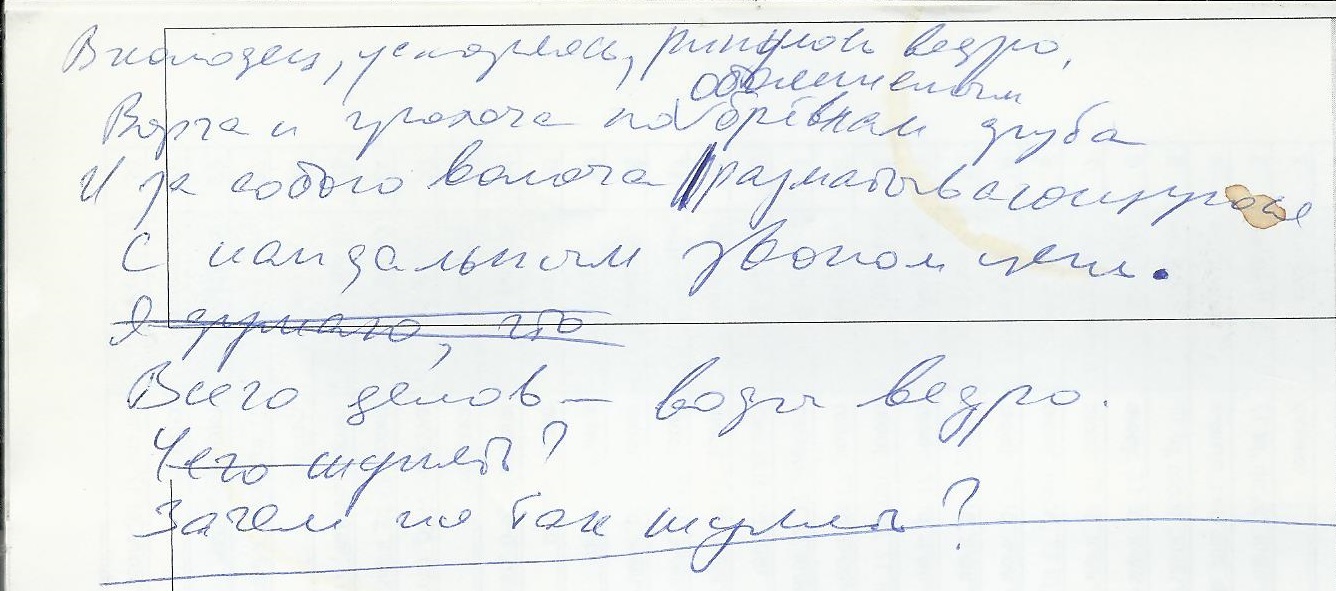 В колодец, ускоряясь, ринулось ведро,
обомшелым
Ворча и грохоча по брёвнам сруба
И за собою волоча разматывающуюся
С кандальным звоном цепь.
Я думаю, что
Всего делов – воды ведро.
Чего шуметь?
Зачем же так шуметь?